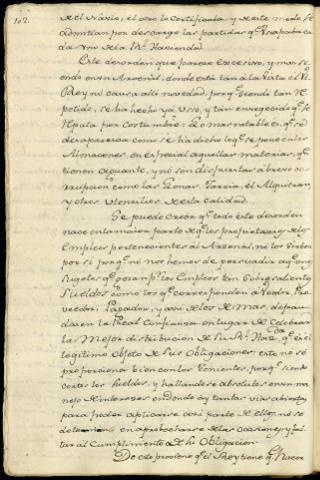 102.
del Navio, el otro lo Certificaba, y de este modo se
admitian por descargo las partidas qe. Usapaba ca
da Uno de la Rl. Hacienda.
Este desorden que parece excesivo, y mas si
endo en un Arsenal, donde esta tan à la Vista el Vi
Rey no causa allì novedad, porqe. siendo tan Re
petido, se ha hecho ya Uso, y tan envegecido qe. se
Reputa por costumbre: Lo mas notable es, qe. se
desaparezca como se ha dicho lo qe. se pone en los
Almacenes, en especial aquellas materias, qe.
tienen aguante, y no son dispuestas à breve co
rrupcion como las Lonas, Jarcia, el Alquitran,
y otros Utensilios de esta calidad.
Se puede Creer qe. todo este desorden
nace en la maior parte de qe. los propietarios de los
Empleos pertenecientes al Arsenal, no los Sirben
por si porqe. no nos hemos de persuadir a qe. unos
Sugetos qe. gozan ps. los Empleos tan Sobresalientes
Sueldos como los qe. corresponden à Vedor, Pro
veedor, Pagador, y assi de los de mas, defrau
daran la Real Confianza en lugar de Celebrar
la Mejor distribucion de Su Rl. Hazda. qe. es el
legitimo Objeto de Sus Obligaciones: esto no se
proporciona bien con los Tenientes, porqe. siendo
cortos los Sueldos, y hallandose absolutos en un ma
nejo de intereses en donde ay tantas vias abiertas
para poder aplicarse assi parte de ellos, no se
detienen en aprobecharse de las Ocasiones, y fal
tar al Cumplimiento de su Obligacion.
De esto proviene qe. el Rey tiene qe. hacer